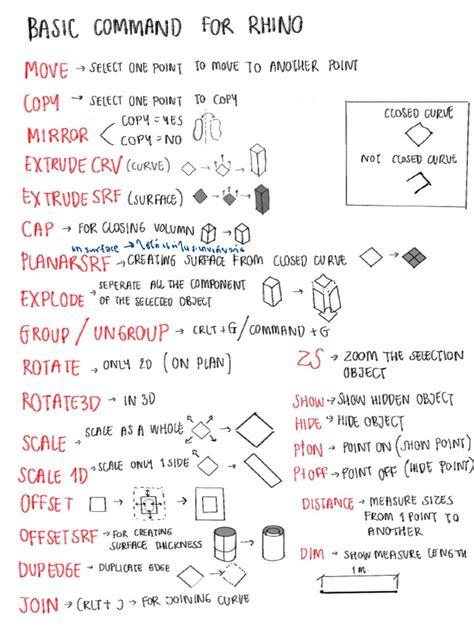 BASIC COMMAND FOR RHINO
MOVE → SELECT ONE POINT TO MOVE TO ANOTHER POINT
COPY → SELECT ONE POINT TO COPY
MIRROR < COPY = YES
COPY = NO
CLOSED CURVE
NOT CLOSED CURVE
EXTRUDE CRV (CURVE)
EXTRUDE SRF (SURFACE)
CAP → FOR CLOSING VOLUMN
surface →
PLANARSRF → CREATING SURFACE FROM CLOSED CURVE
EXPLODE → SEPERATE ALL THE COMPONENT
OF THE SELECTED OBJECT
GROUP / UNGROUP → CRLT + G / COMMAND + G
ROTATE → ONLY 2D (ON PLAN)
ROTATE3D → IN 3D
SCALE → SCALE AS A WHOLE
SCALE 1D → SCALE ONLY 1 SIDE
OFFSET
OFFSETSRF → FOR CREATING
SURFACE THICKNESS
DUPEDGE → DUPLICATE EDGE
JOIN → CRLT + J → FOR JOINING CURVE
ZS → ZOOM THE SELECTION
OBJECT
SHOW → SHOW HIDDEN OBJECT
HIDE → HIDE OBJECT
PTON → POINT ON (SHOW POINT)
PTOFF → POINT OFF (HIDE POINT)
DISTANCE → MEASURE SIZES
FROM 1 POINT TO
ANOTHER
DIM → SHOW MEASURE LENGTH
1 m.